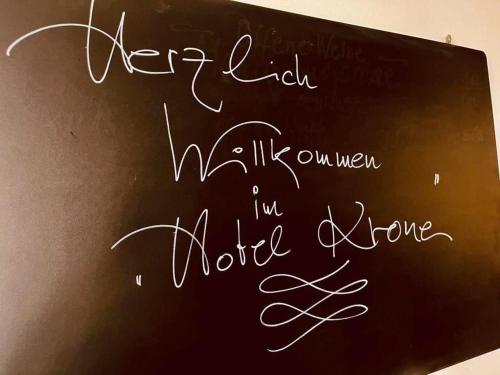 Herzlich
Willkommen
im
„Hotel Krone"